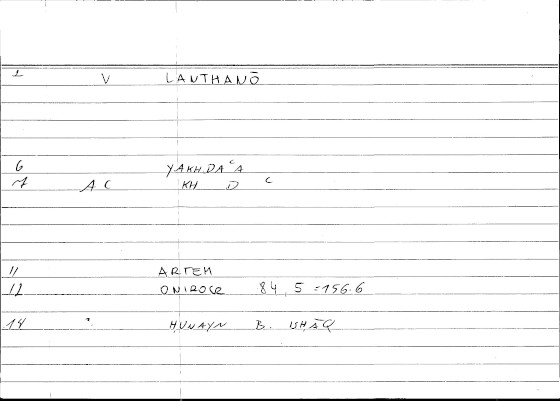 1 V LANTHANŌ
6 YAKHDAʿA
7 AC KH D C
11 ARTEM
12 ONIROCR 84, 5 = 156.6
14 HUNAYN B. ISHĀQ